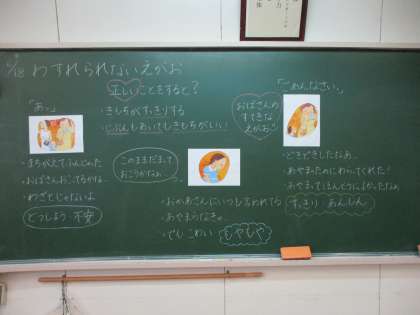 わすれられないえがお
正しいことをすると?
・きもちがすっきりする
・じぶんもあいてもきもちがいい!
「あっ。」
・まちがえて
・おばさんおこってるかな…
・わざとじゃないよ
どうしよう 不安
このままだまって
おこうかなぁ
・おかあさんにいつも言われてる
・あやまらなきゃ。
・でも こわい
もやもや
おばさんの
すてきな
えがお
「ごめんなさい。」
・どきどきしたなぁ…
・あやまったのにわらってくれた!
・あやまってほんとうによかったなぁ
すっきり あんしん